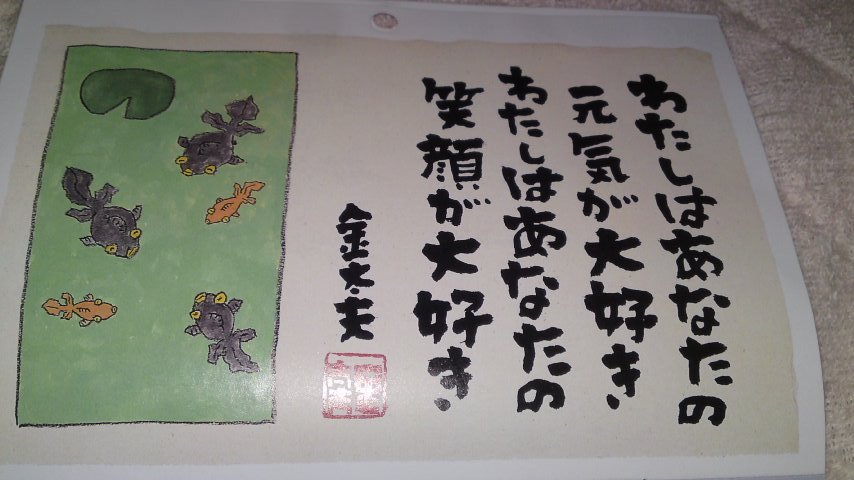 わたしはあなたの
元気が大好き
わたしはあなたの
笑顔が大好き
金太夫